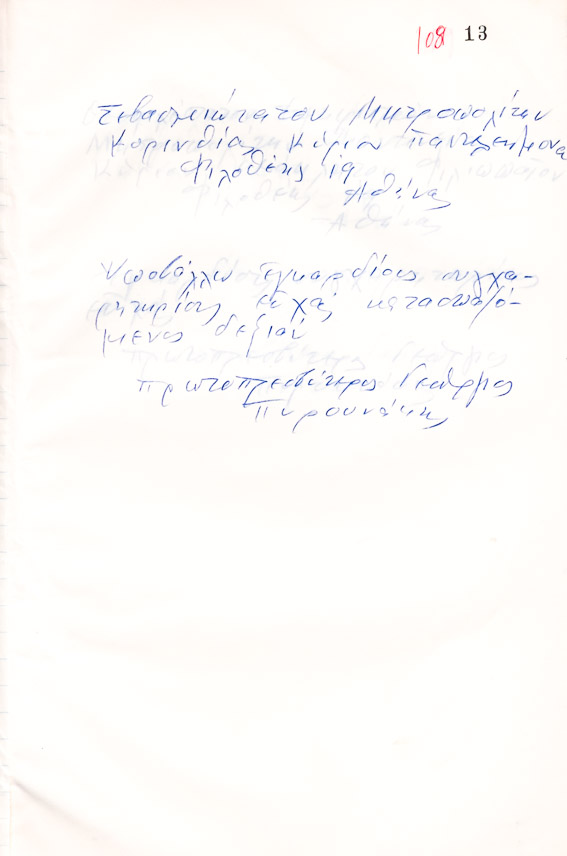 108 13
Σεβασμιώτατον Μητροπολίτην
Κορινθίας Κύριον Παντελεήμονα
Φιλοθέης 19
Αθήνας
Υποβάλλω εγκαρδίους συγχα-
ρητηρίους ευχάς κατασπαζό-
μενος δεξιάν
Πρωτοπρεσβύτερος Γεώργιος
Πυρουνάκης